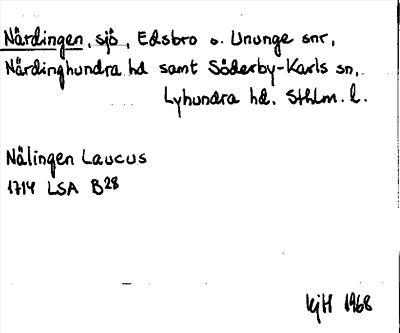 Närdingen, sjö, Edsbro o. Ununge snr,
Närdinghundra hd samt Söderby-Karls sn,
Lyhundra hd. Sthlm. l.
Nålingen Laucus
1714 LSA B28
KjH 1968